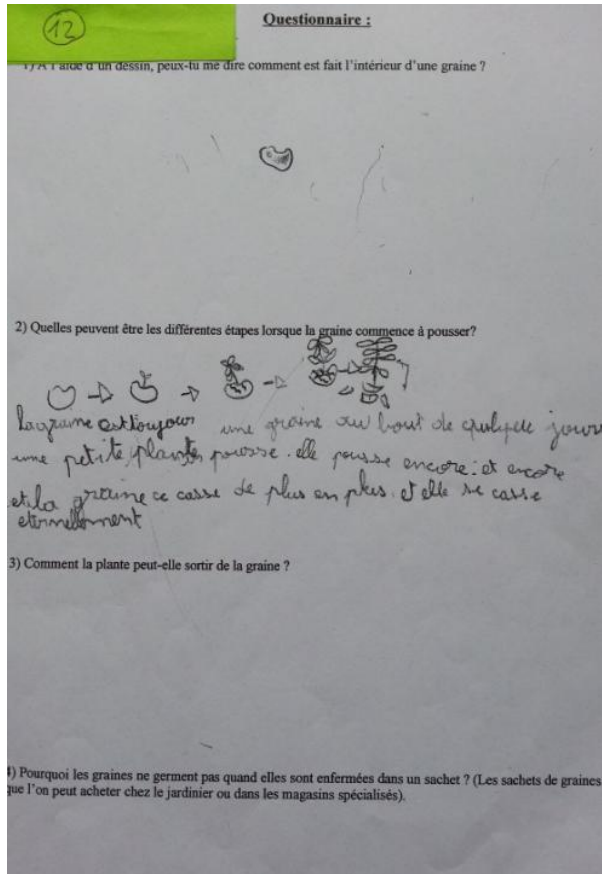 12
Questionnaire :
1) A l'aide d'un dessin, peux-tu me dire comment est fait l'intérieur d'une graine ?
2) Quelles peuvent être les différentes étapes lorsque la graine commence à pousser?
la graine est toujour une graine au bout de quelque jours
une petite plante pousse. elle pousse encore et encore
et la graine ce casse de plus en plus. et elle se casse
eternellement
3) Comment la plante peut-elle sortir de la graine ?
4) Pourquoi les graines ne germent pas quand elles sont enfermées dans un sachet ? (Les sachets de graines
que l'on peut acheter chez le jardinier ou dans les magasins spécialisés).